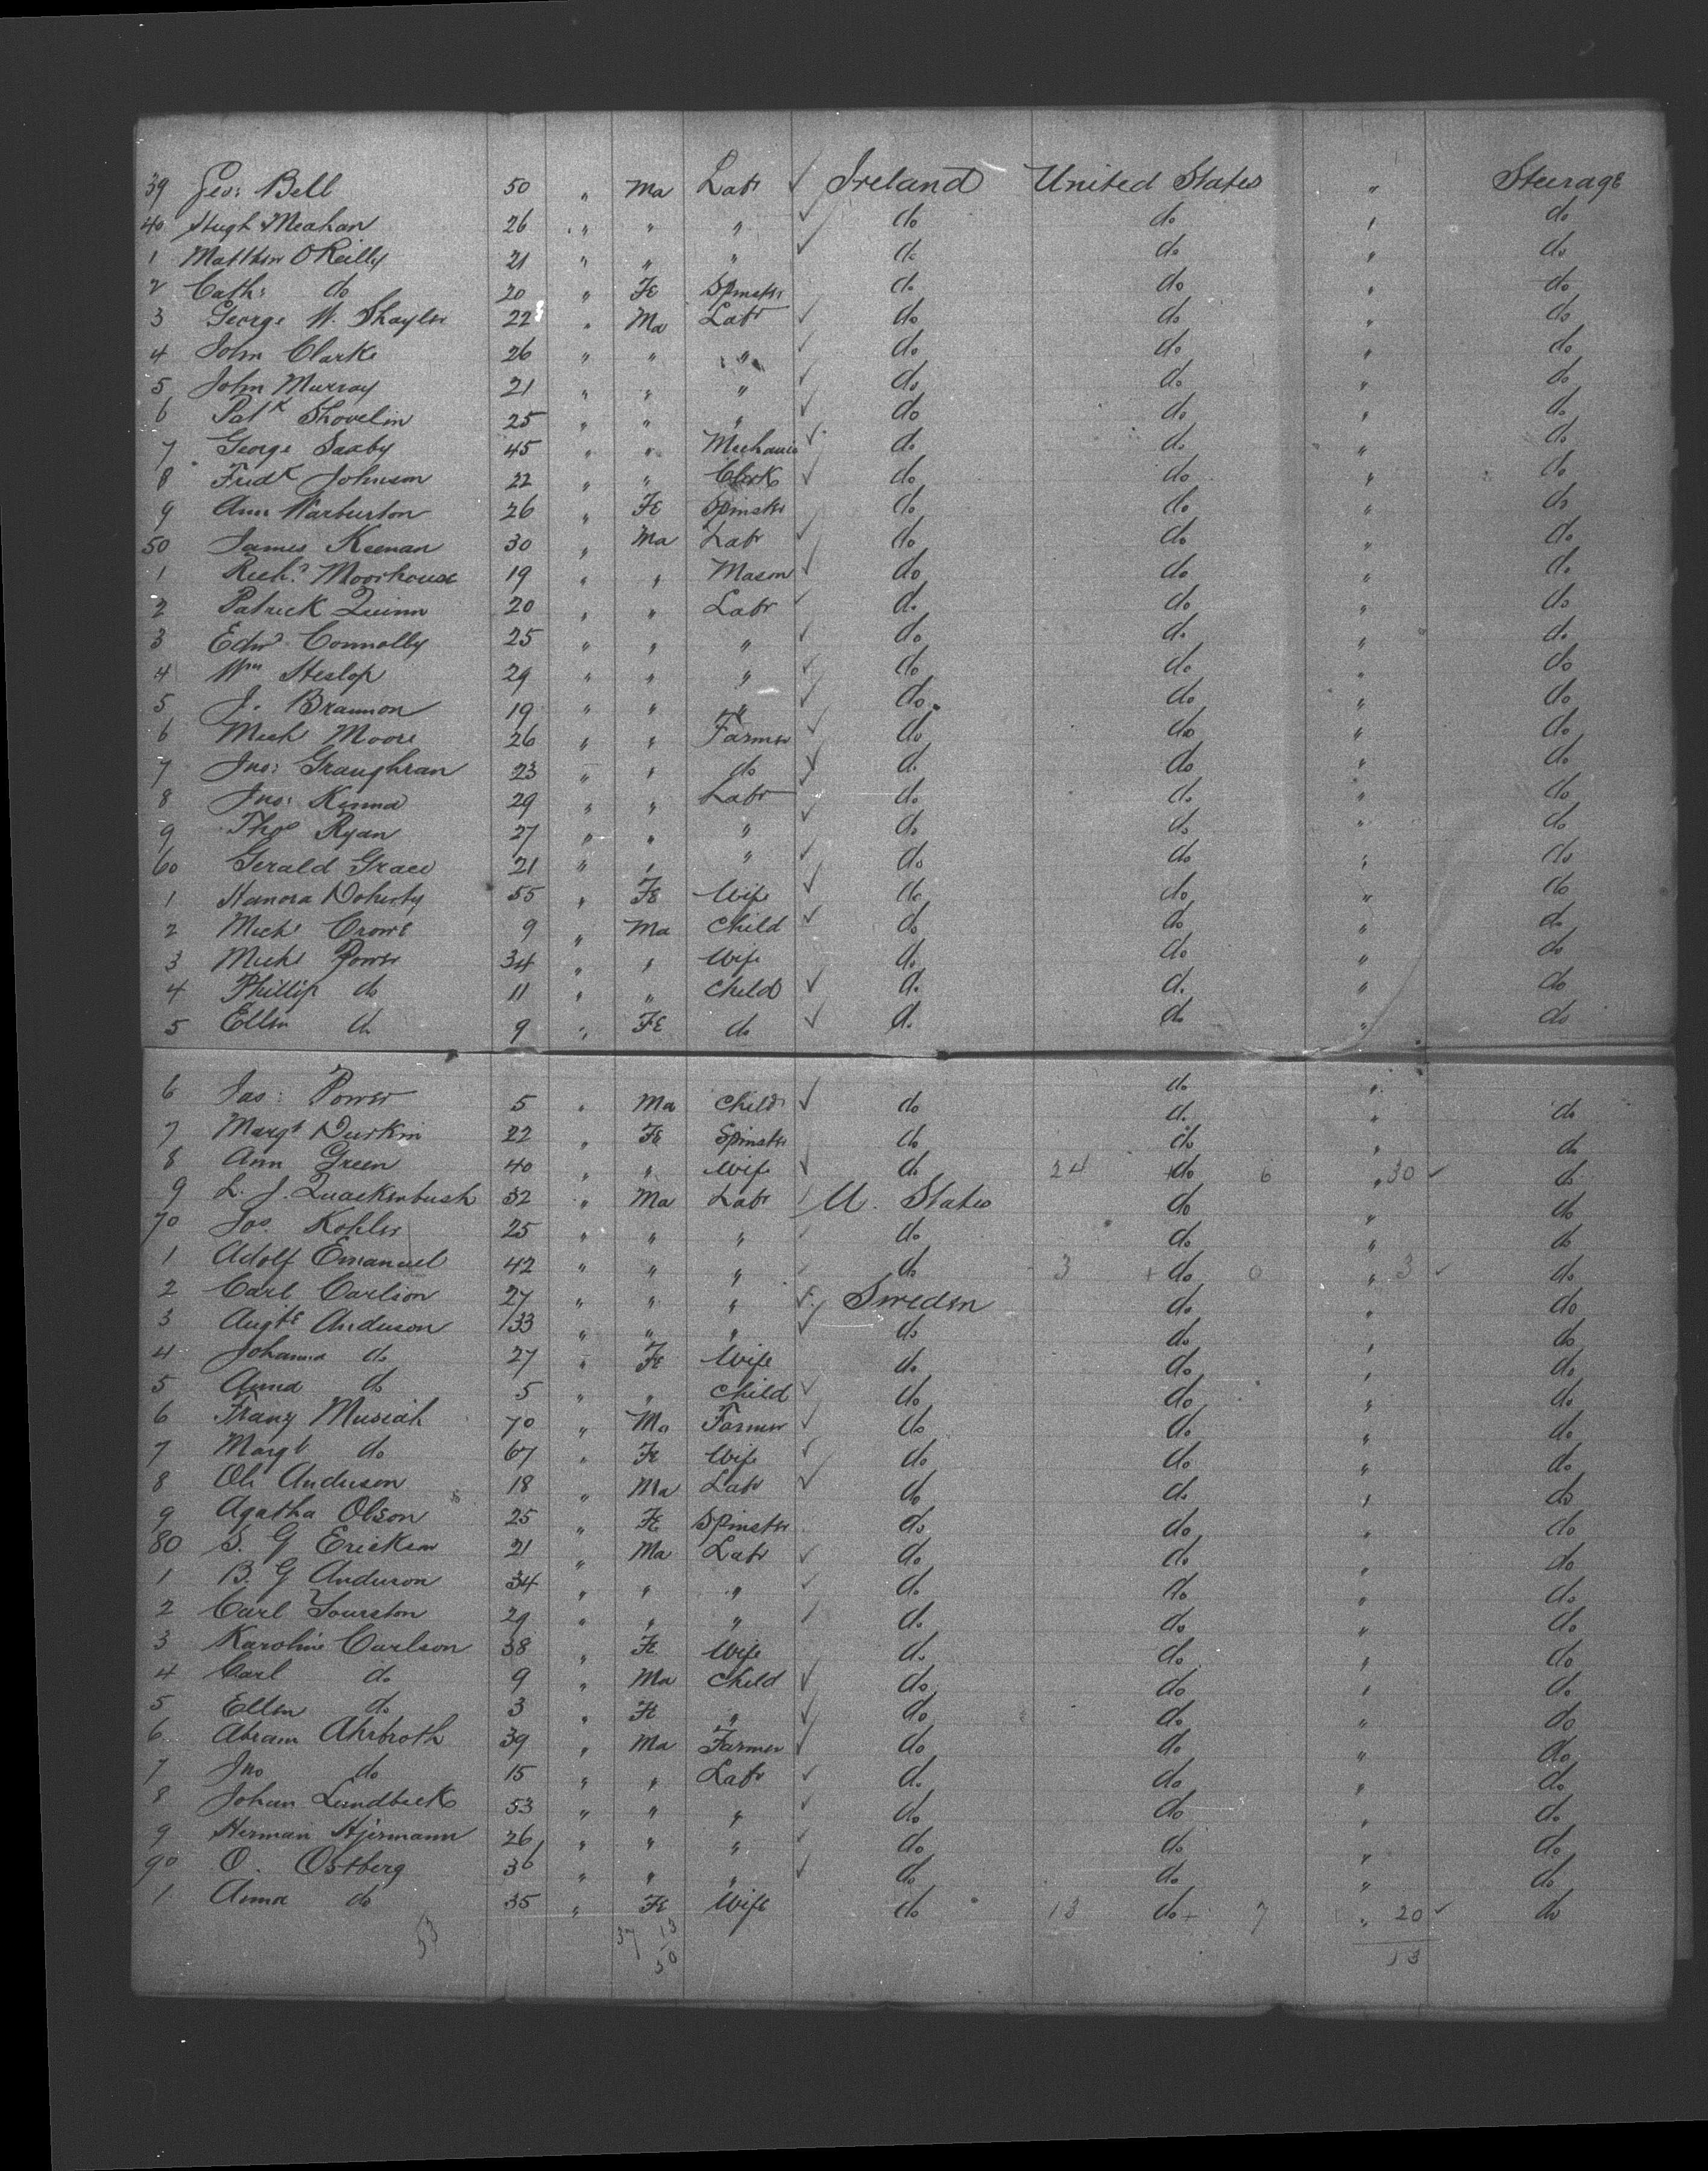 39 Geo: Bell 50 " Ma Labr ✓ Ireland United States " Steerage
40 Hugh Meahan 26 " " " ✓ do do " do
1 Matthew O Reilly 21 " " " ✓ do do " do
2 Cath: do 20 " Fe Spinster do do " do
3 George W. Shayler 22 " Ma Labr ✓ do do " do
4 John Clarke 26 " " " ✓ do do " do
5 John Murray 21 " " " ✓ do do " do
6 Patk Shovelin 25 " " " ✓ do do " do
7 George Saxby 45 " " Mechanic ✓ do do " do
8 Fredk Johnson 22 " " Clerk ✓ do do " do
9 Ann Warburton 26 " Fe Spinster do do " do
50 James Keenan 30 " Ma Labr ✓ do do " do
1 Richd Moorhouse 19 " " Mason ✓ do do " do
2 Patrick Quinn 20 " " Labr ✓ do do " do
3 Edwd Connolly 25 " " " ✓ do do " do
4 Wm Heslop 29 " " " ✓ do do " do
5 J. Brannon 19 " " " ✓ do do " do
6 Michl Moore 26 " " Farmer ✓ do do " do
7 Jno: Graughran 23 " " do ✓ do do " do
8 Jno: Kinna 29 " " Labr ✓ do do " do
9 Thos Ryan 27 " " " ✓ do do " do
60 Gerald Grace 21 " " " ✓ do do " do
1 Hanora Doherty 55 " Fe Wife ✓ do do " do
2 Michl Crowe 9 " Ma Child ✓ do do " do
3 Michl Power 34 " " Wife do do " do
4 Phillip do 11 " " Child ✓ do do " do
5 Ellen do 9 " Fe do ✓ do do " do
6 Jas: Power 5 " Ma Child ✓ do do " do
7 Margt Durkin 22 " Fe Spinster do do " do
8 Ann Green 40 " " Wife ✓ do 24 do 6 " 30 ✓ do
9 L. J. Quackenbush 32 " Ma Labr ✓ U. States do " do
70 Jos. Kohler 25 " " " ✓ do do " do
1 Adolf Emanuel 42 " " " ✓ do 3 + do 0 " 3 ✓ do
2 Carl Carlson 27 " " " ✓ Sweden do " do
3 Augte Anderson 33 " " " ✓ do do " do
4 Johanna do 27 " Fe Wife do do " do
5 Anna do 5 " " Child ✓ do do " do
6 Franz Musiah 70 " Ma Farmer ✓ do do " do
7 Margt do 67 " Fe Wife ✓ do do " do
8 Ole Anderson 18 " Ma Labr ✓ do do " do
9 Agatha Olson 25 " Fe Spinster do do " do
80 S. G Erickson 21 " Ma Labr ✓ do do " do
1 B. G Anderson 34 " " " ✓ do do " do
2 Carl Yourston 29 " " " ✓ do do " do
3 Karoline Carlson 38 " Fe Wife do do " do
4 Carl do 9 " Ma Child ✓ do do " do
5 Ellen do 3 " Fe " ✓ do do " do
6 Abram Ahrbroth 39 " Ma Farmer ✓ do do " do
7 Jno do 15 " " Labr ✓ do do " do
8 Johan Lundbeck 53 " " " ✓ do do " do
9 Herman Hjermann 26 " " " ✓ do do " do
90 O. Ostberg 36 " " " ✓ do do " do
1 Anna do 35 " Fe Wife do 13 do + 7 " 20 ✓ do
53 37 13 53
50